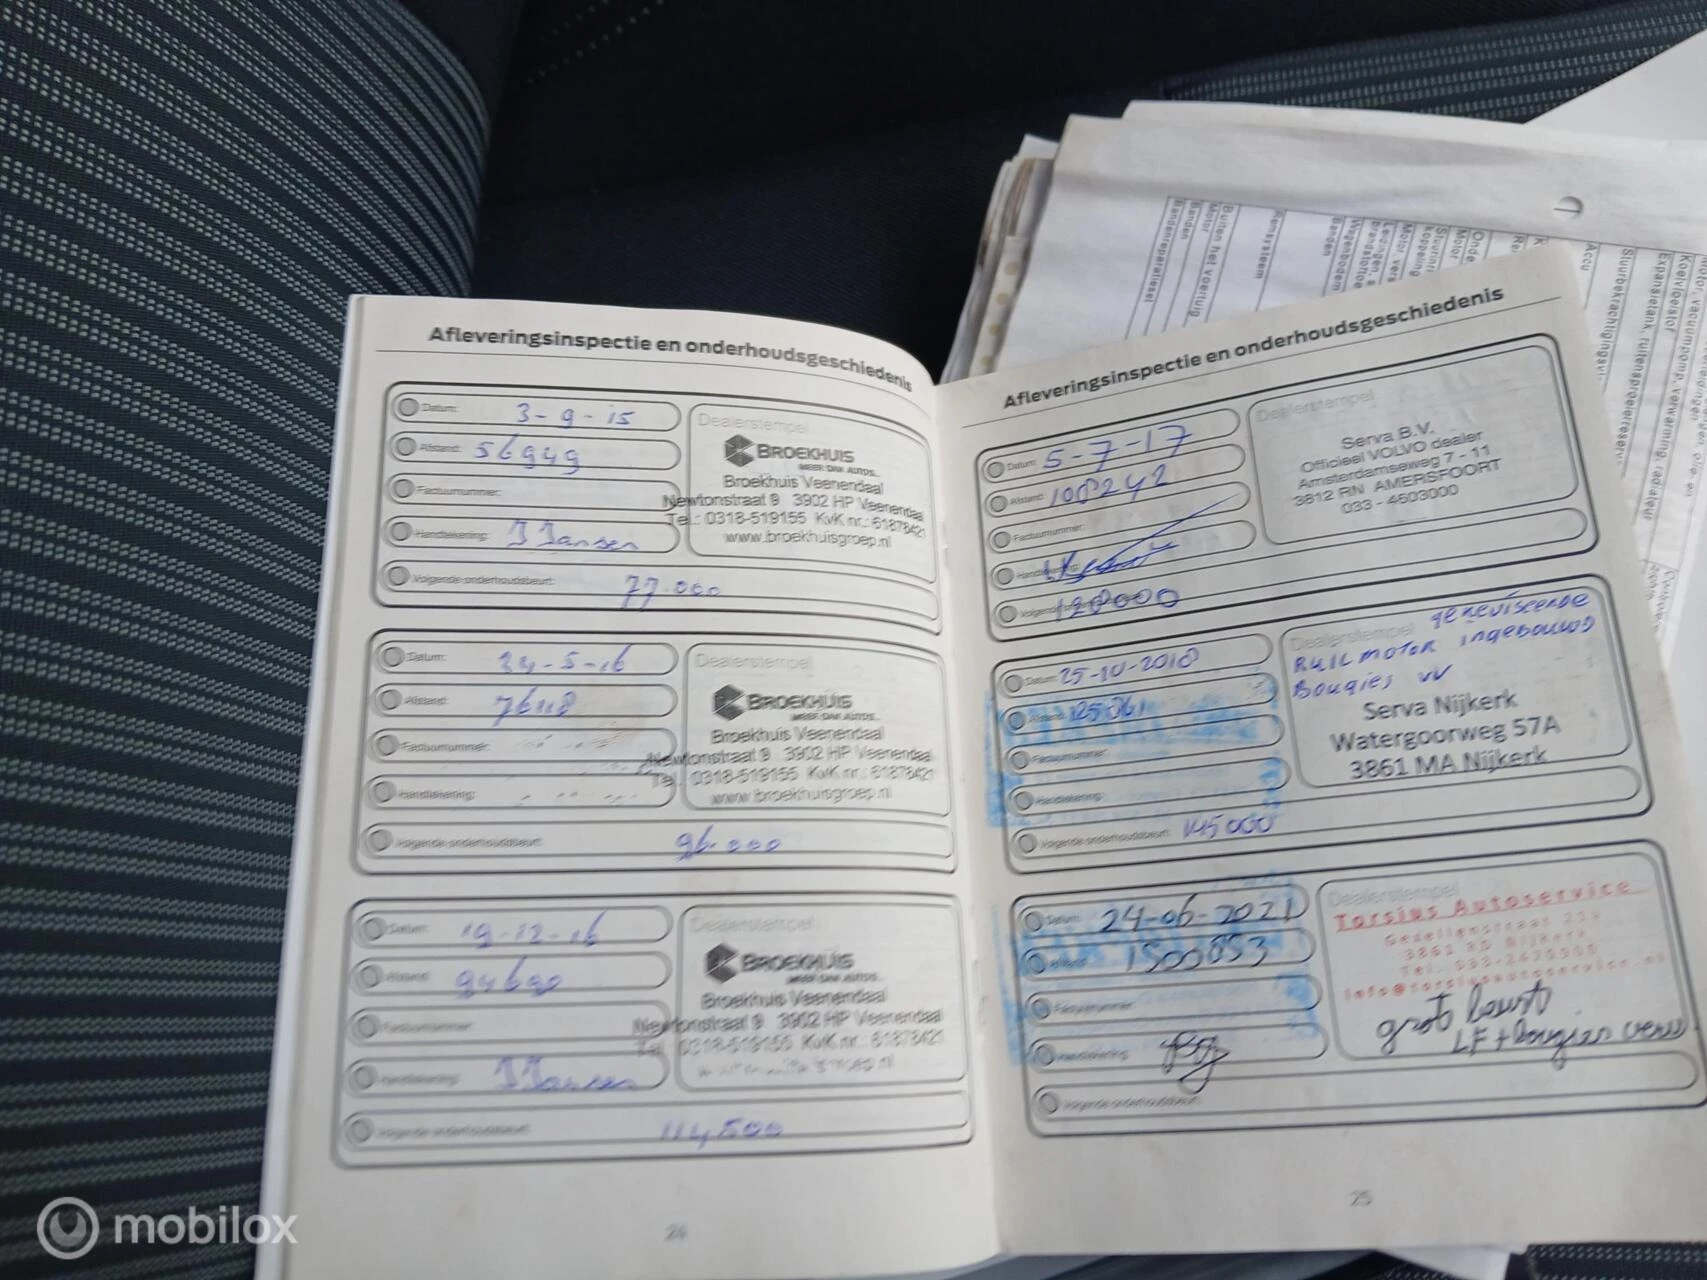 Afleveringsinspectie en onderhoudsgeschiedenis
Datum: 3-9-15
Afstand: 56949
Factuurnummer:
Handtekening: J Jansen
Volgende onderhoudsbeurt: 77.000
Dealerstempel
BROEKHUIS
MEER DAN AUTO'S..
Broekhuis Veenendaal
Newtonstraat 9 3902 HP Veenendaal
Tel.: 0318-519155 KvK nr.: 61878421
www.broekhuisgroep.nl
Datum: 24-5-16
Afstand: 76118
Factuurnummer:
Handtekening:
Volgende onderhoudsbeurt: 96.000
Dealerstempel
BROEKHUIS
MEER DAN AUTO'S..
Broekhuis Veenendaal
Newtonstraat 9 3902 HP Veenendaal
Tel.: 0318-519155 KvK nr.: 61878421
www.broekhuisgroep.nl
Datum: 19-12-16
Afstand: 94690
Factuurnummer:
Handtekening: J Jansen
Volgende onderhoudsbeurt: 114,500
Dealerstempel
BROEKHUIS
MEER DAN AUTO'S..
Broekhuis Veenendaal
Newtonstraat 9 3902 HP Veenendaal
Tel.: 0318-519155 KvK nr.: 61878421
24
Afleveringsinspectie en onderhoudsgeschiedenis
Datum: 5-7-17
Afstand: 108242
Factuurnummer:
Handtekening:
Volgende 128000
Dealerstempel
Serva B.V.
Officieel VOLVO dealer
Amsterdamseweg 7 - 11
3812 RN AMERSFOORT
033 - 4603000
Datum: 25-10-2018
Afstand: 125061
Factuurnummer:
Handtekening:
Volgende onderhoudsbeurt: 145000
Dealerstempel gereviseerde
RUILMOTOR ingebouwd
Bougies vv
Serva Nijkerk
Watergoorweg 57A
3861 MA Nijkerk
Datum: 24-06-2021
Afstand: 1500853
Factuurnummer:
Handtekening:
Volgende onderhoudsbeurt:
Dealerstempel
Torsius Autoservice
Gezellenstraat
3861 RD Nijkerk
Tel. 033-2470500
info@torsiusautoservice.nl
grote beurt
LF + bougies verv
25
Accu
Stuurbekrachtigingsvl
Expansietank, ruitensproeierreserv
Koelvloeistof
Remsysteem
Buiten het voertuig
Motor
Banden
Bandenreparatieset
Wagenbodem
Banden
mobilox